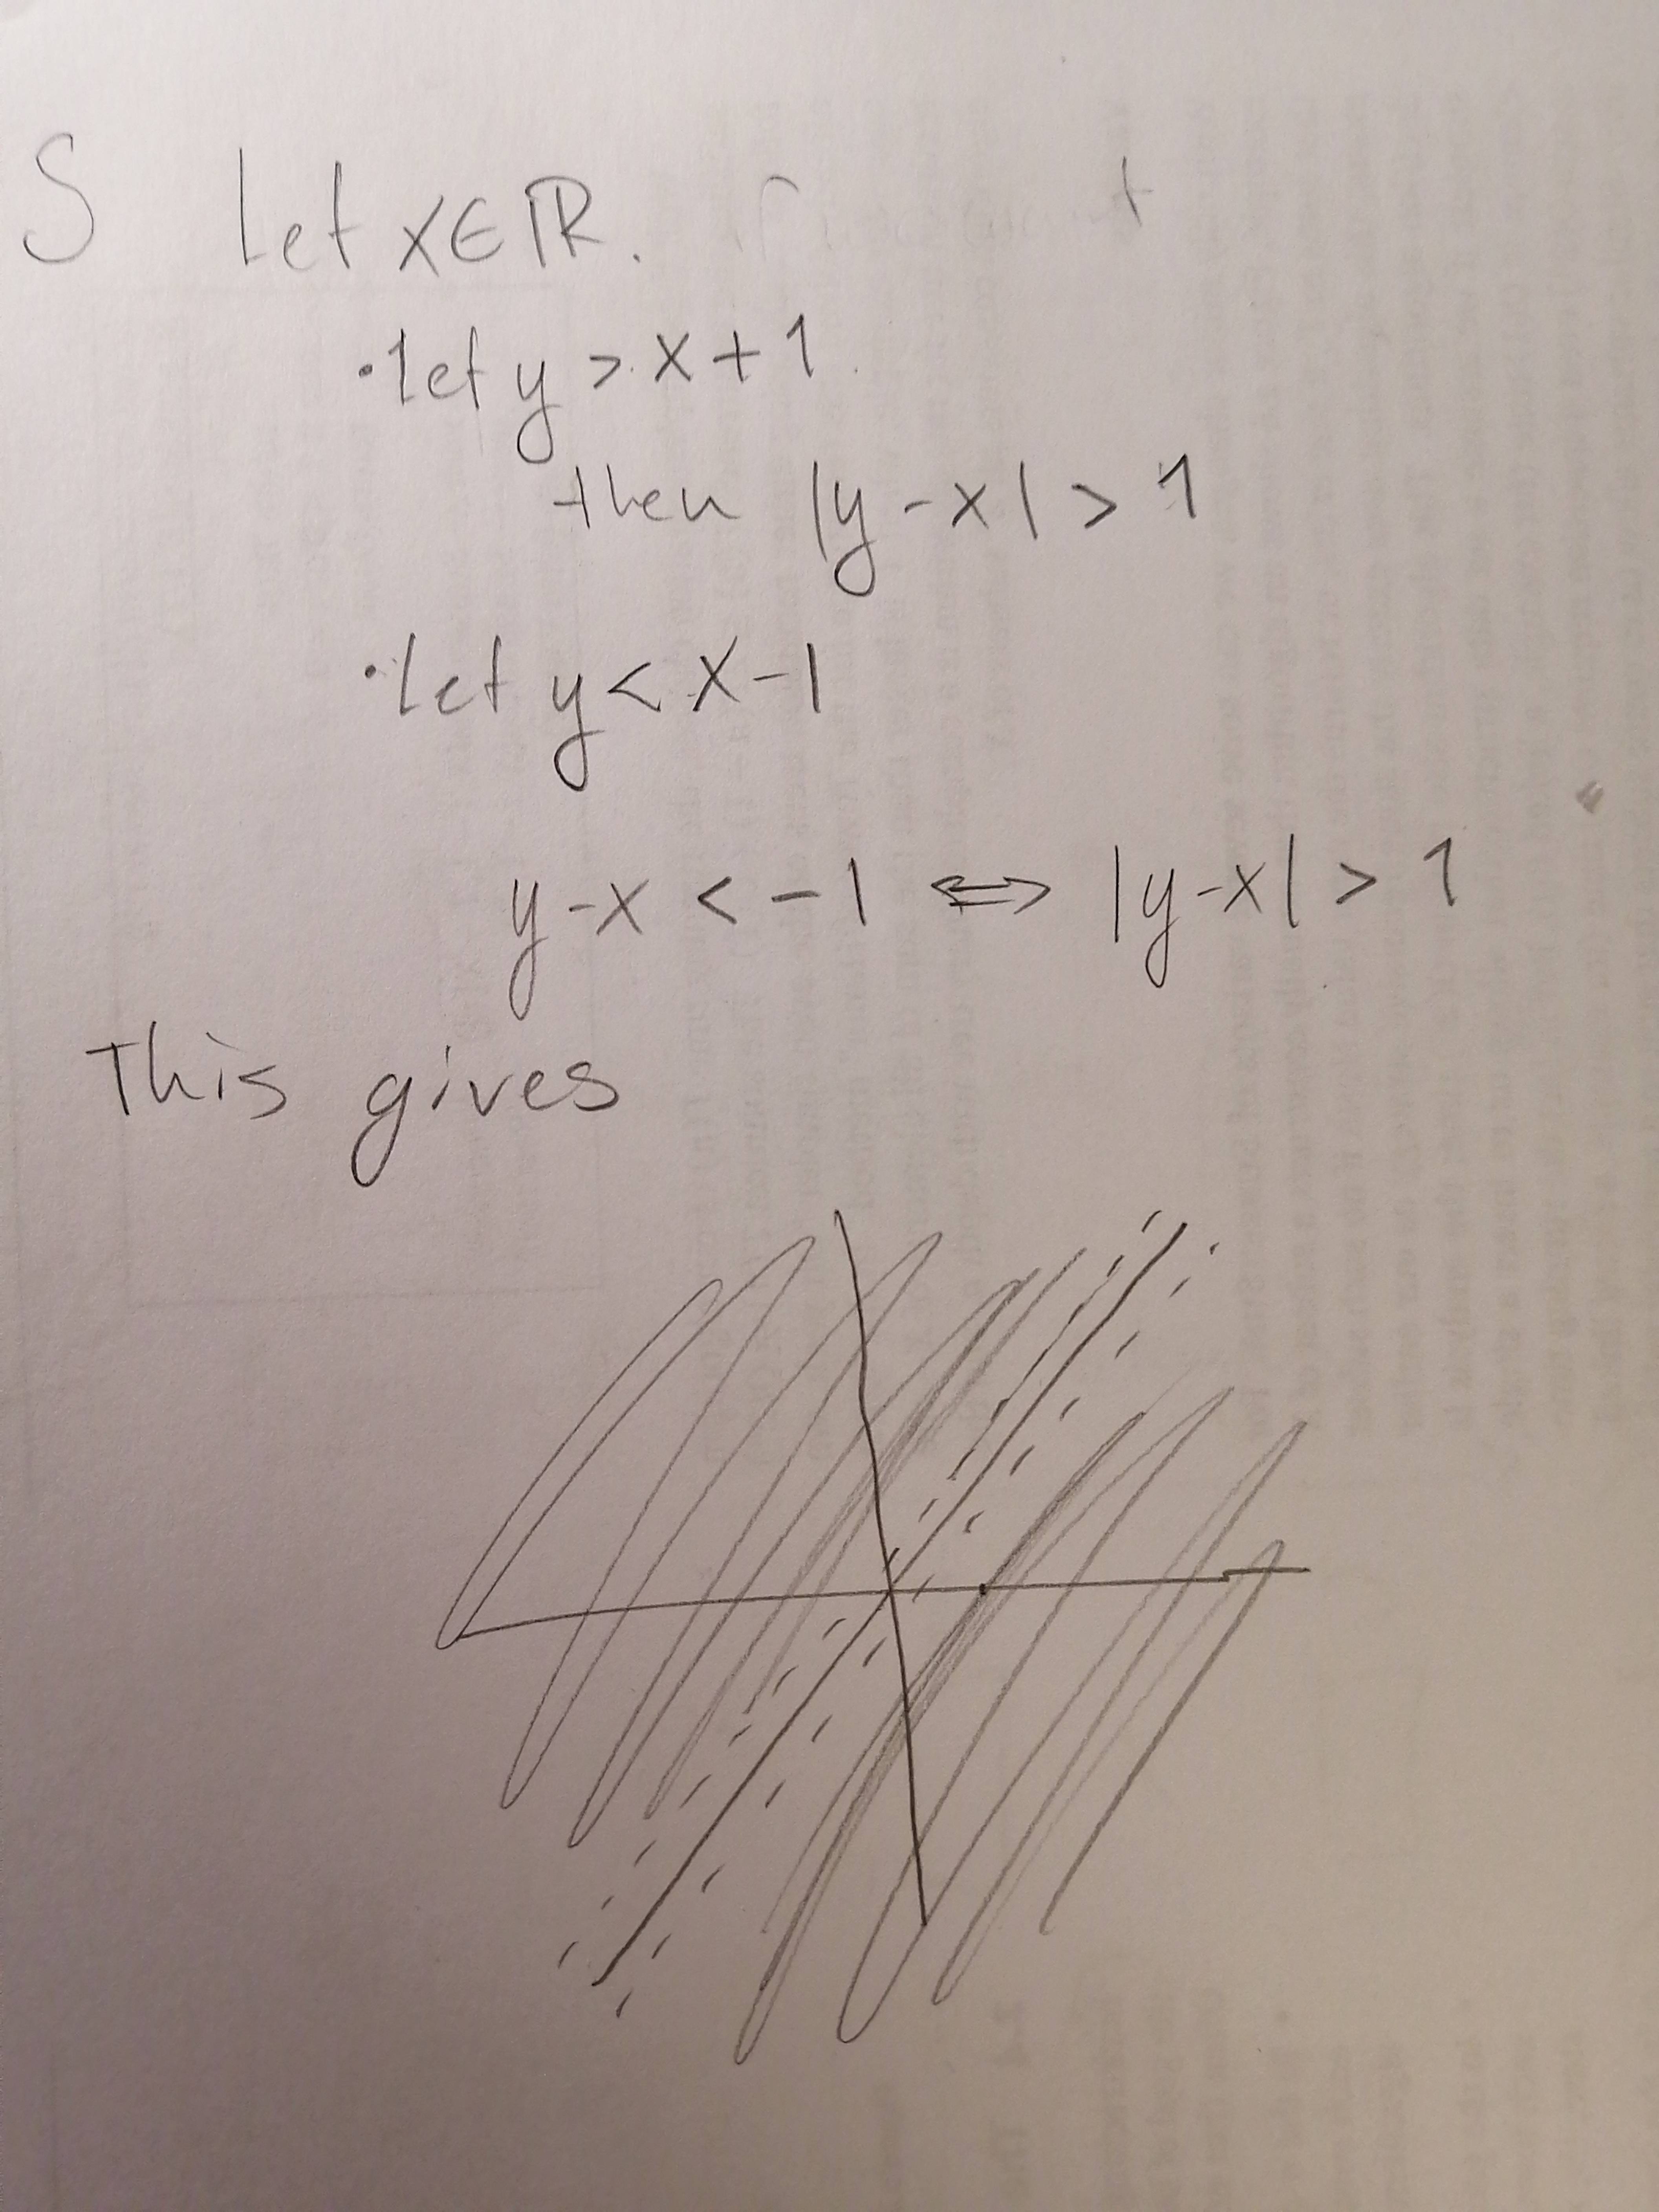 S Let x∈ℝ.
• let y > x + 1
then |y - x| > 1
• let y < x - 1
y - x < - 1 ⇔ |y - x| > 1
This gives